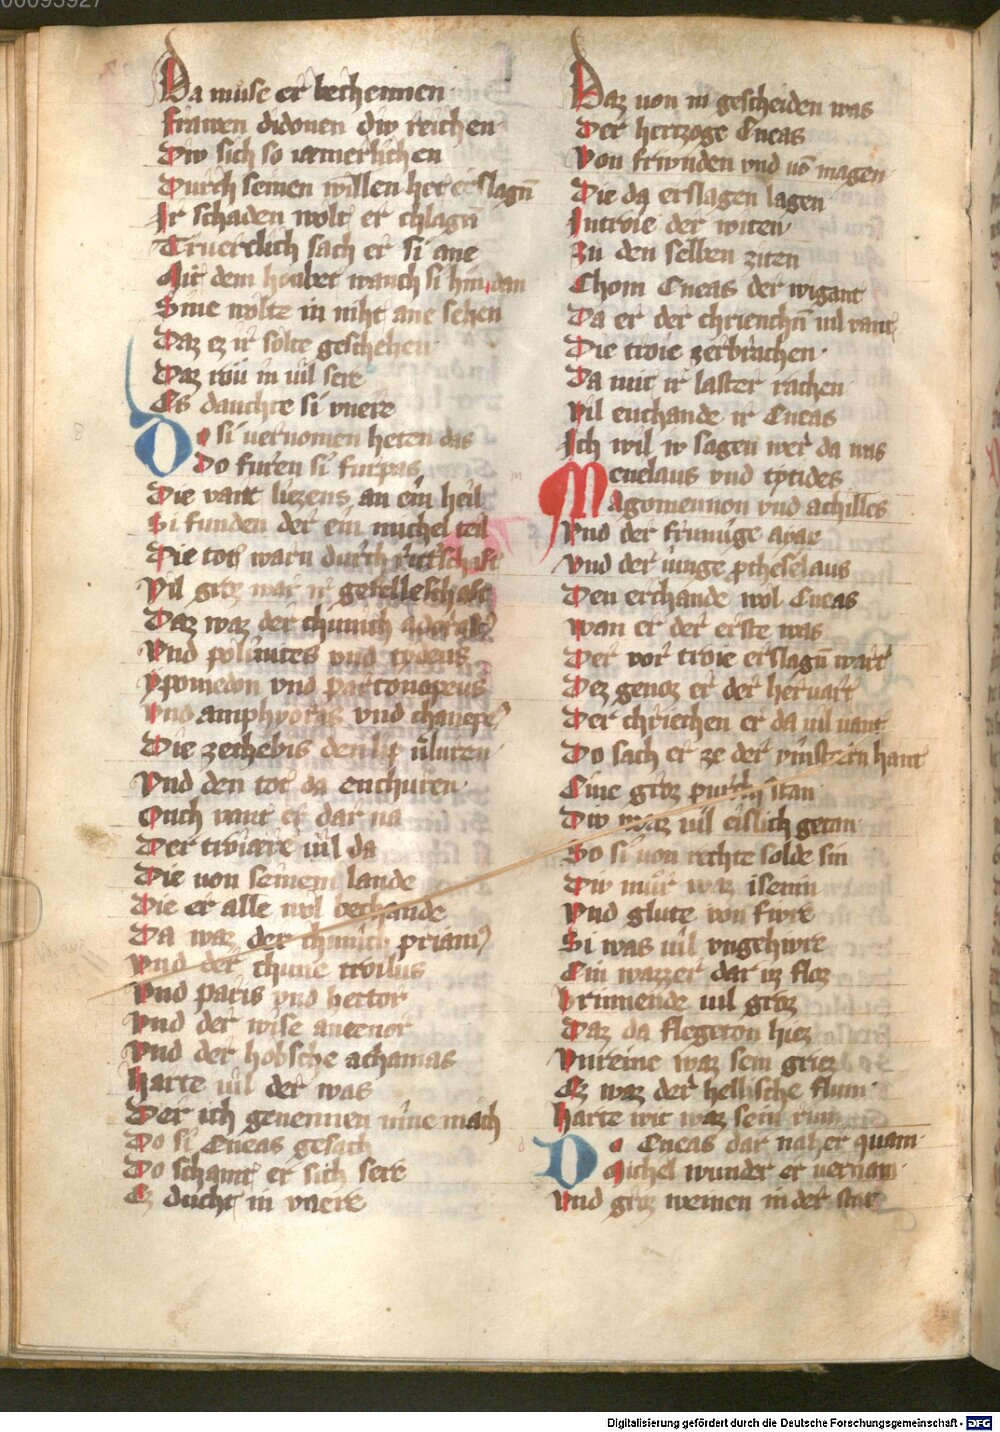 00095927
Da muse er bechennen
frawen didonen diw reichen
Diw sich so iæmerlichen
Durch seinen willen het erslagn̄
Ir schaden wolt er chlagn̄
Truerclich sach er si ane
Mit dem houbet wanch si hin dan
Sine woltz in niht ane sehen
Daz ez ir solte geschehen
Daz roŭ in uil sere
Es dauchte si vnere
Do si uernomen heten das
Do furen si furpas
Die vant liezens an ein heil
Si funden der ein michel teil
Die tot warn durch ritt'schaft
Vil groz war ir geselleschaft
Daz waz der chunich
Vnd polinites vnd tydeus
ypomedon vnd partonopeus
Vnd amphyoras vnd
Die ze thebis den lip uluren
Vnd den tot da enchuren
Ouch vant er dar na
Der troiære uil da
Die uon seinem lande
Die er alle wol bechande
Da waz der chunich priam9
Vnd der chune troilus
Vnd paris vnd hector
Vnd der wise antenor
Vnd der hobsche achamas
harte uil der was
Der ich genennen nine mach
Do si Eneas gesach
Do schamt er sich sere
Ez ducht in vnere
Daz uon in gescheiden was
Der hertzoge Eneas
Von friwnden vnd vō magen
Die da erslagen lagen
In troie der witen
Zu den selben ziten
Chom Eneas der wigant
Da er der chriechn̄ uil vant
Die troie zerbrachen
Da mit ir laster rachen
Vil enchande ir Eneas
Ich wil iv sagen wer da was
Menelaus vnd tytides
Magomennon vnd achilles
Vnd der frumige ayax
Vnd der iunge ptheselaus
Den erchande wol Eneas
wan er der erste was
Der vor troie erslagn̄ wart
Dez genoz er der heruart
Der chriechen er da uil uant
Do sach er ze der vinstern hant
Eine groz purch stan
Diw waz uil eislich getan
So si uon rechte solde sin
Diw mur waz isenin
Vnd glute von fiwre
Si was uil vngehiwre
Ein wazzer dar uz floz
brinnende uil groz
Daz da flegeton hiez
Vnreine waz sein griez
Ez waz der hellische flum
harte wit waz sein rum
Do Eneas dar naher quam
Michel wunder er uernam
Vnd groz weinen in der stat
Digitalisierung gefördert durch die Deutsche Forschungsgemeinschaft - DFG